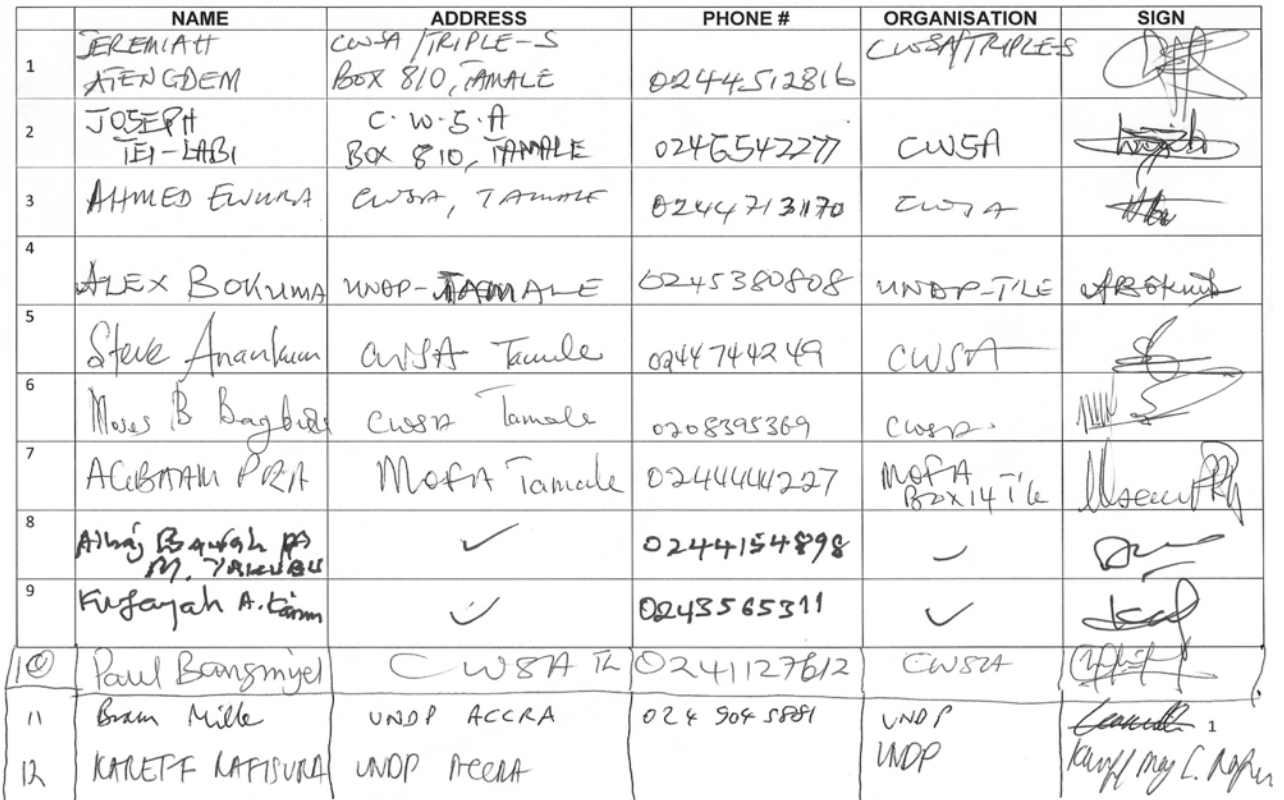 NAME ADDRESS PHONE # ORGANISATION SIGN
1 JEREMIAH ATENGDEM CWSA/TRIPLE-S BOX 810, TAMALE 0244512816 CWSA/TRIPLE-S
2 JOSEPH TEI-LABI C.W.S.A BOX 810, TAMALE 0246542277 CWSA
3 AHMED EWURA CWSA, TAMALE 0244713170 CWSA
4 ALEX BOKUMA UNDP-TAMALE 0245380808 UNDP-T'LE
5 Steve CWSA Tamale 0244744249 CWSA
6 Moses B CWSA Tamale 0208395369 CWSA
7 MOFA Tamale 0244444227 MOFA Box 14 T'le
8 Alhaj M. YAKUBU 0244154898
9 A. Karim 0243565311
10 Paul CWSA TL 0241127612 CWSA
11 UNDP ACCRA 024 9045881 UNDP 1
12 UNDP ACCRA UNDP